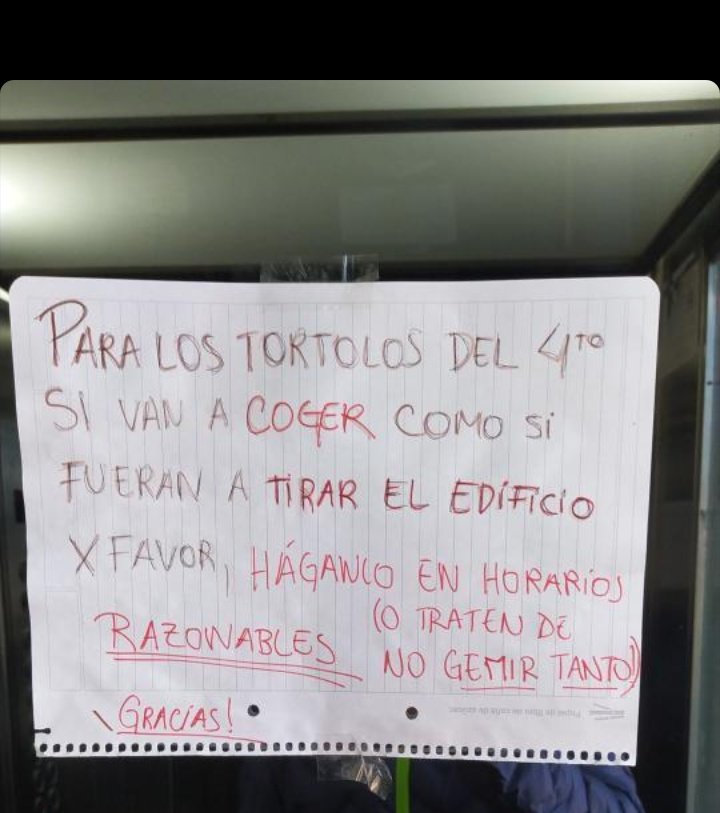 PARA LOS TORTOLOS DEL 4TO
SI VAN A COGER COMO SI
FUERAN A TIRAR EL EDIFICIO
X FAVOR, HÁGANLO EN HORARIOS
RAZONABLES (O TRATEN DE
NO GEMIR TANTO!)
GRACIAS!
Papel de fibra de caña de azúcar